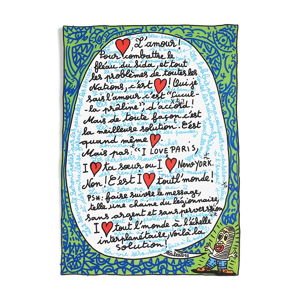 ❤ L'amour!
Pour combattre le
fléau du Sida, et tout
les problèmes de toutes les
Nations, c'est ❤! Oui je
sais l'amour, c'est "Cucul-
la praline", d'accord!
Mais de toute façon c'est
la meilleure solution. C'est
quand même ❤
Mais pas, "I LOVE PARIS,
I ❤ ta sœur ou I ❤ NEW YORK.
Non! C'est I ❤ tout l'monde!
P.S.: faire suivre le message,
telle une chaîne du légionnaire,
sans argent et sans perversion
I ❤ tout l'monde à l'échelle
interplanétaire, voilà la
solution!